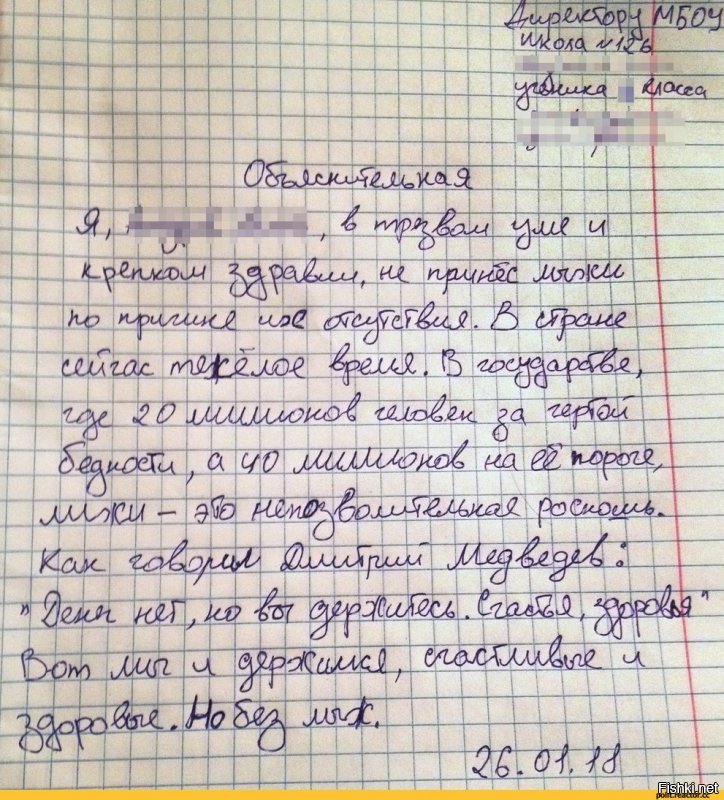 Директору МБОУ
школа №126
ученика класса
Объяснительная
Я, , в трезвом уме и
крепком здравии, не принёс лыжи
по причине их отсутствия. В стране
сейчас тяжёлое время. В государстве,
где 20 миллионов человек за чертой
бедности, а 40 миллионов на её пороге,
лыжи – это непозволительная роскошь.
Как говорил Дмитрий Медведев:
"Денег нет, но вы держитесь. Счастья, здоровья"
Вот мы и держимся, счастливые и
здоровые. Но без лыж.
26.01.18
Fishki.net